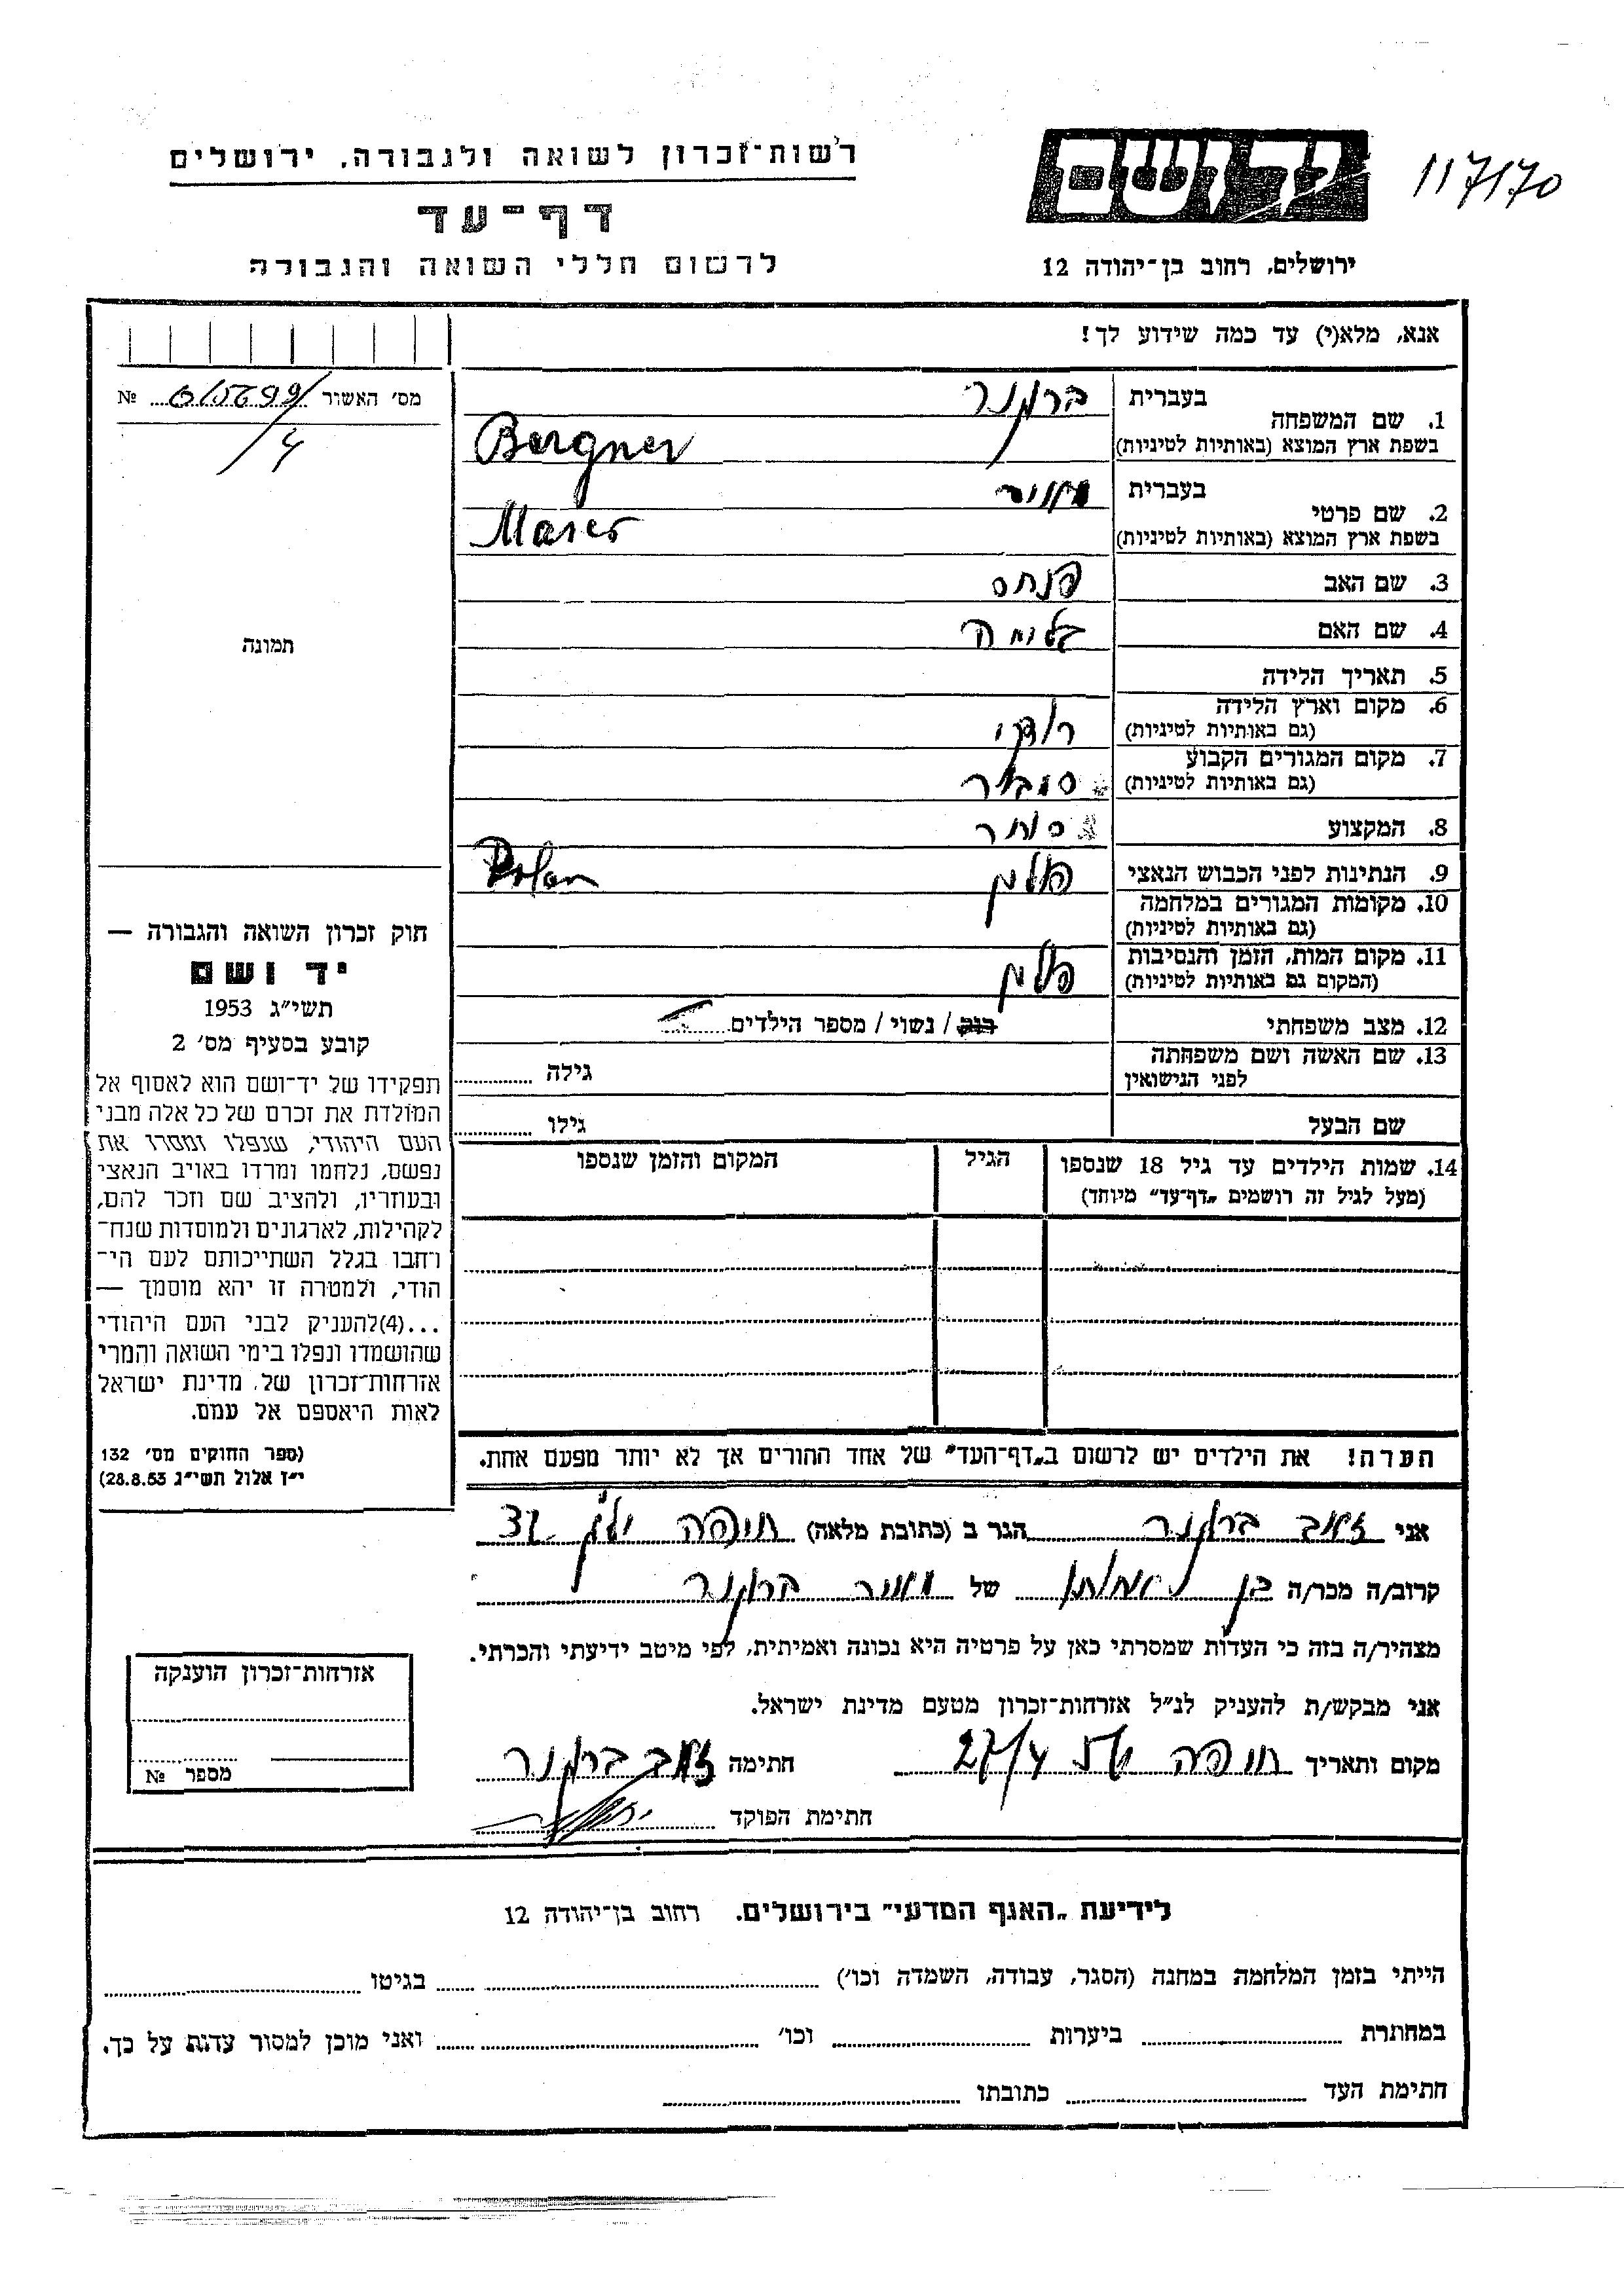 רשות־זכרון לשואה ולגבורה, ירושלים
דף־עד
לרשום חללי השואה והגבורה
יד ושם
117170
ירושלים, רחוב בן־יהודה 12
אנא, מלא(י) עד כמה שידוע לך!
מס׳ האשור №
4
1. שם המשפחה
בעברית ברגנר
בשפת ארץ המוצא (באותיות לטיניות) Bergner
2. שם פרטי
בעברית
בשפת ארץ המוצא (באותיות לטיניות)
3. שם האב פנחס
4. שם האם בלומה
5. תאריך הלידה
6. מקום וארץ הלידה
(גם באותיות לטיניות) רודקי
7. מקום המגורים הקבוע
(גם באותיות לטיניות) סמבור
8. המקצוע סוחר
9. הנתינות לפני הכבוש הנאצי פולין Polen
10. מקומות המגורים במלחמה
(גם באותיות לטיניות)
11. מקום המות, הזמן והנסיבות
(המקום גם באותיות לטיניות) פולין
12. מצב משפחתי רווק / נשוי / מספר הילדים
13. שם האשה ושם משפחתה
לפני הנישואין גילה
שם הבעל גילו
14. שמות הילדים עד גיל 18 שנספו הגיל המקום והזמן שנספו
(מעל לגיל זה רושמים „דף־עד" מיוחד)
הערה! את הילדים יש לרשום ב„דף־העד" של אחד ההורים אך לא יותר מפעם אחת.
תמונה
חוק זכרון השואה והגבורה —
יד ושם
תשי״ג 1953
קובע בסעיף מס׳ 2
תפקידו של יד־ושם הוא לאסוף אל
המולדת את זכרם של כל אלה מבני
העם היהודי, שנפלו ומסרו את
נפשם, נלחמו ומרדו באויב הנאצי
ובעוזריו, ולהציב שם וזכר להם,
לקהילות, לארגונים ולמוסדות שנח־
רבו בגלל השתייכותם לעם הי־
הודי, ולמטרה זו יהא מוסמך —
...(4)להעניק לבני העם היהודי
שהושמדו ונפלו בימי השואה והמרי
אזרחות־זכרון של מדינת ישראל
לאות היאספם אל עמם.
(ספר החוקים מס׳ 132
י״ז אלול תשי״ג 28.8.53)
אני זאב ברגנר הגר ב (כתובת מלאה) חיפה
קרוב/ה מכר/ה בן של מאיר ברגנר
מצהיר/ה בזה כי העדות שמסרתי כאן על פרטיה היא נכונה ואמיתית, לפי מיטב ידיעתי והכרתי.
אני מבקש/ת להעניק לנ״ל אזרחות־זכרון מטעם מדינת ישראל.
מקום ותאריך חיפה 27/4 חתימה זאב ברגנר
חתימת הפוקד
אזרחות־זכרון הוענקה
מספר №
לידיעת „האגף המדעי" בירושלים, רחוב בן־יהודה 12
הייתי בזמן המלחמה במחנה (הסגר, עבודה, השמדה וכו׳) בגיטו
במחתרת ביערות וכו׳ ואני מוכן למסור עדות על כך.
חתימת העד כתובתו